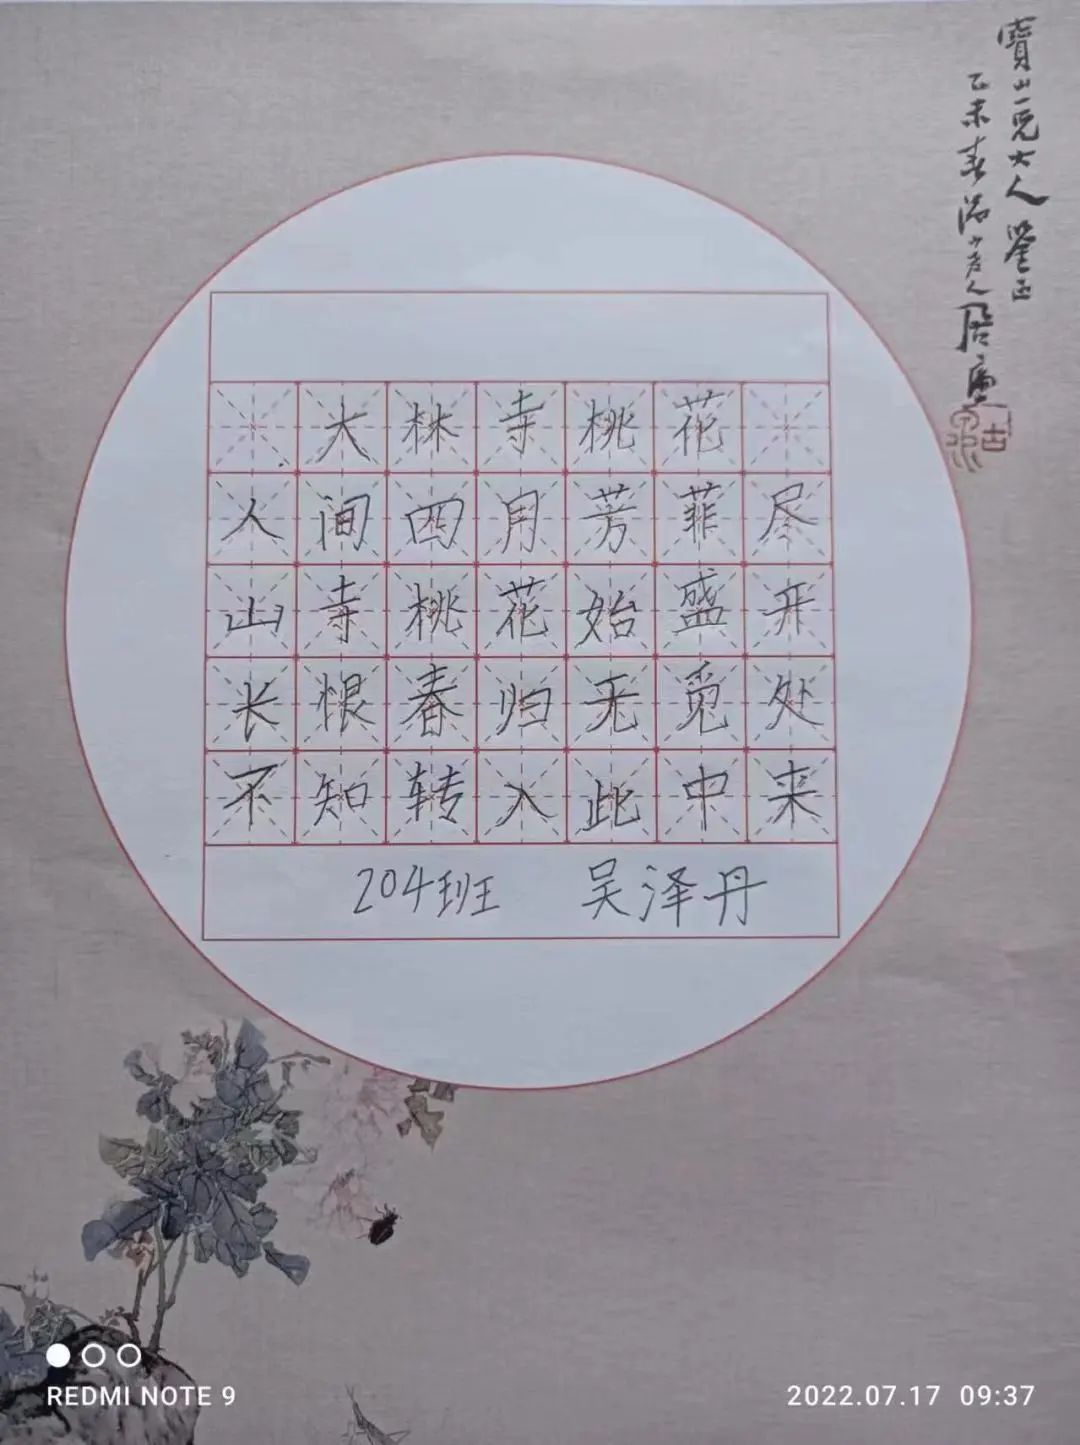 寶山一兄大人鉴正
乙未春
居廉
大林寺桃花
人间四月芳菲尽
山寺桃花始盛开
长恨春归无觅处
不知转入此中来
204班 吴泽丹
REDMI NOTE 9
2022.07.17 09:37